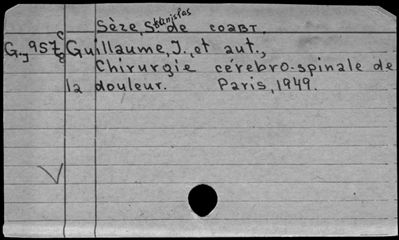 Sèze, Stanislas de соавт.
G.J 957 c/8 Guillaume, J., et aut.,
Chirurgie cérebro-spinale de
la douleur. Paris, 1949.